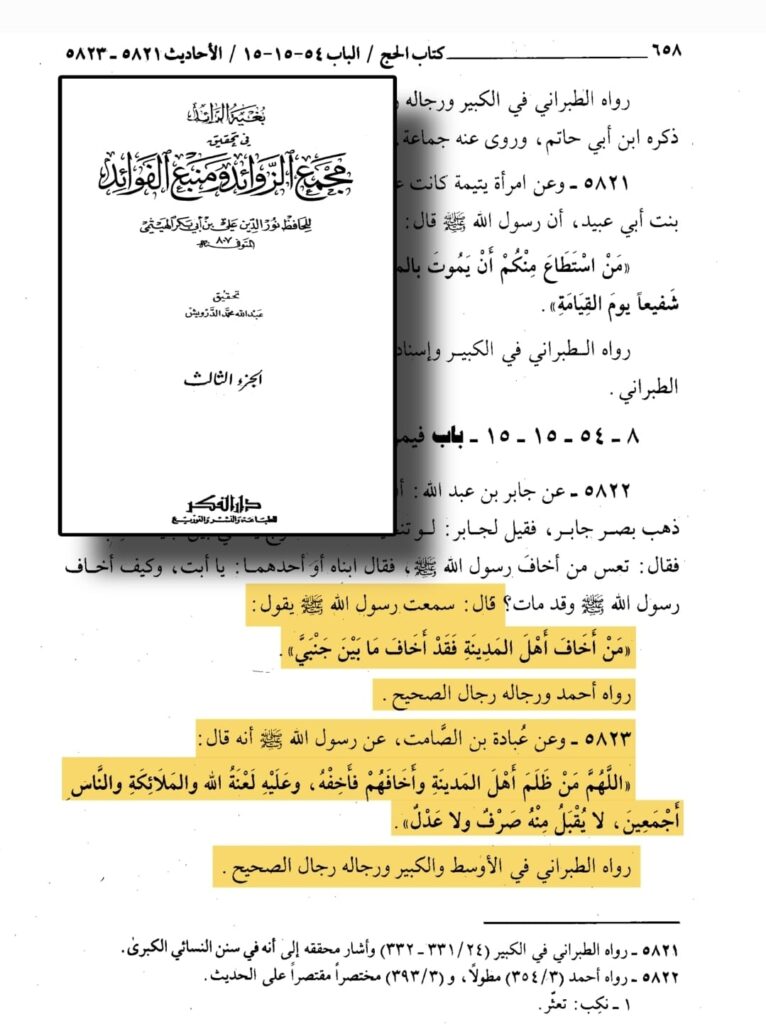 ٦٥٨
كتاب الحج / الباب ٥٤-١٥-١٥ / الأحاديث ٥٨٢١ ـ ٥٨٢٣
بغية الرائد
في تحقيق
مجمع الزوائد ومنبع الفوائد
للحافظ نور الدين علي بن أبي بكر الهيثمي
المتوفى ٨٠٧
تحقيق
عبد الله محمد الدرويش
الجزء الثالث
دار الفكر
للطباعة والنشر والتوزيع
رواه الطبراني في الكبير ورجاله
ذكره ابن أبي حاتم، وروى عنه جماعة.
٥٨٢١ ـ وعن امرأة يتيمة كانت
بنت أبي عبيد، أن رسول الله ﷺ قال:
«مَنْ اسْتَطَاعَ مِنْكُمْ أَنْ يَمُوتَ
شَفيعاً يومَ القِيَامَةِ».
رواه الـطبراني في الكبيـر
الطبراني.
٨ ـ ٥٤ ـ ١٥ ـ ١٥ ـ باب
٥٨٢٢ ـ عن جابر بن عبد الله:
ذهب بصـر جابـر، فقيل لجـابر:
فقال: تعس من أخاف رسول الله ﷺ، فقال ابناه أو أحدهمـا: يا أبت، وكيف أخـاف
رسول الله ﷺ وقد مات؟ قال: سمعت رسول الله ﷺ يقول:
«مَنْ أَخَافَ أَهْلَ المَدِينَةِ فَقَدْ أَخَافَ مَا بَيْنَ جَنْبَيَّ».
رواه أحمد ورجاله رجال الصحيح.
٥٨٢٣ ـ وعن عُبادة بن الصَّامت، عن رسول الله ﷺ أنه قال:
«اللَّهُمَّ مَنْ ظَلَمَ أَهْلَ المَدينَةِ وأَخَافَهُمْ فَأَخِفْهُ، وعَلَيْهِ لَعْنَةُ الله والمَلَائِكَةِ والنَّاسِ
أَجْمَعِينَ، لا يُقْبَلُ مِنْهُ صَرْفٌ ولا عَدْلٌ».
رواه الطبراني في الأوسط والكبير ورجاله رجال الصحيح.
٥٨٢١ ـ رواه الطبراني في الكبير (٢٤/ ٣٣١ ـ ٣٣٢) وأشار محققه إلى أنه في سنن النسائي الكبرى.
٥٨٢٢ ـ رواه أحمد (٣/ ٣٥٤) مطولًا، و (٣/ ٣٩٣) مختصراً مقتصراً على الحديث.
١ ـ نكِب: تعثّر.